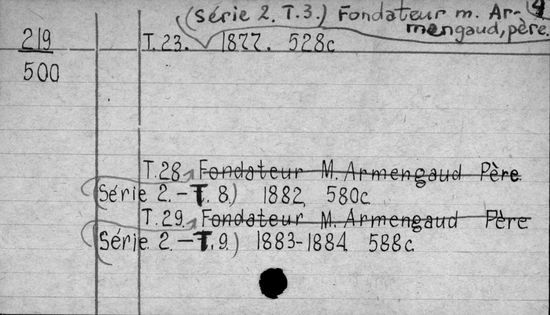 4
(Série 2. T.3.) Fondateur m. Ar-
mengaud, père.
219 T.23. 1877. 528c
500
T.28 Fondateur M. Armengaud Père
(Série 2.-T. 8.) 1882, 580c.
T.29. Fondateur M. Armengaud Père
(Série 2.-T.9.) 1883-1884 588c.